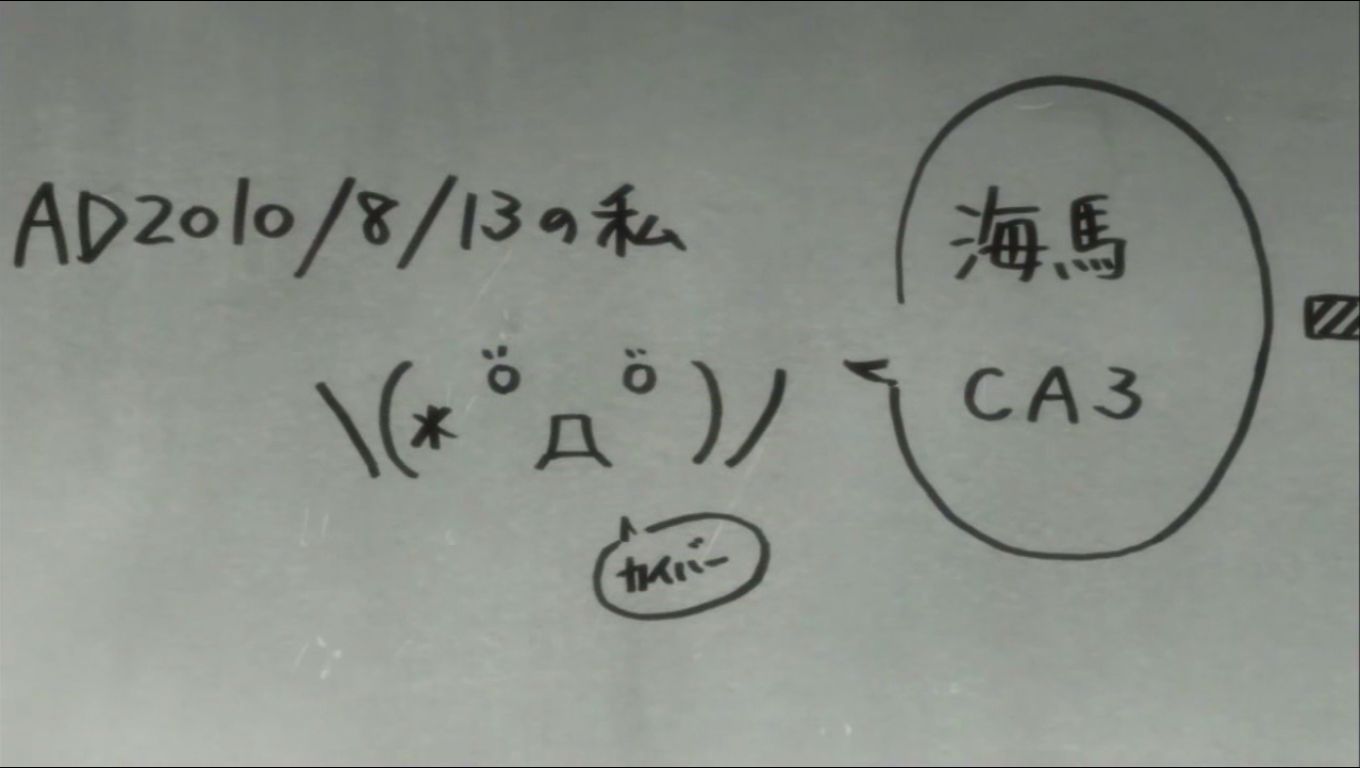 AD2010/8/13の私
海馬
CA3
\(* ӧ Д ӧ )/
カイバー